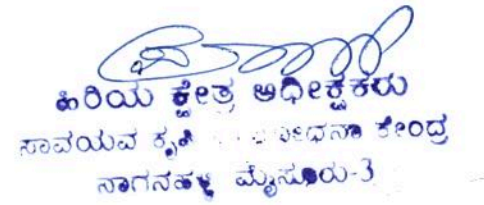 ಹಿರಿಯ ಕ್ಷೇತ್ರ ಅಧೀಕ್ಷಕರು
ಸಾವಯವ ಕೃಷಿ ಕೇಂದ್ರ
ನಾಗನಹಳ್ಳಿ ಮೈಸೂರು-3